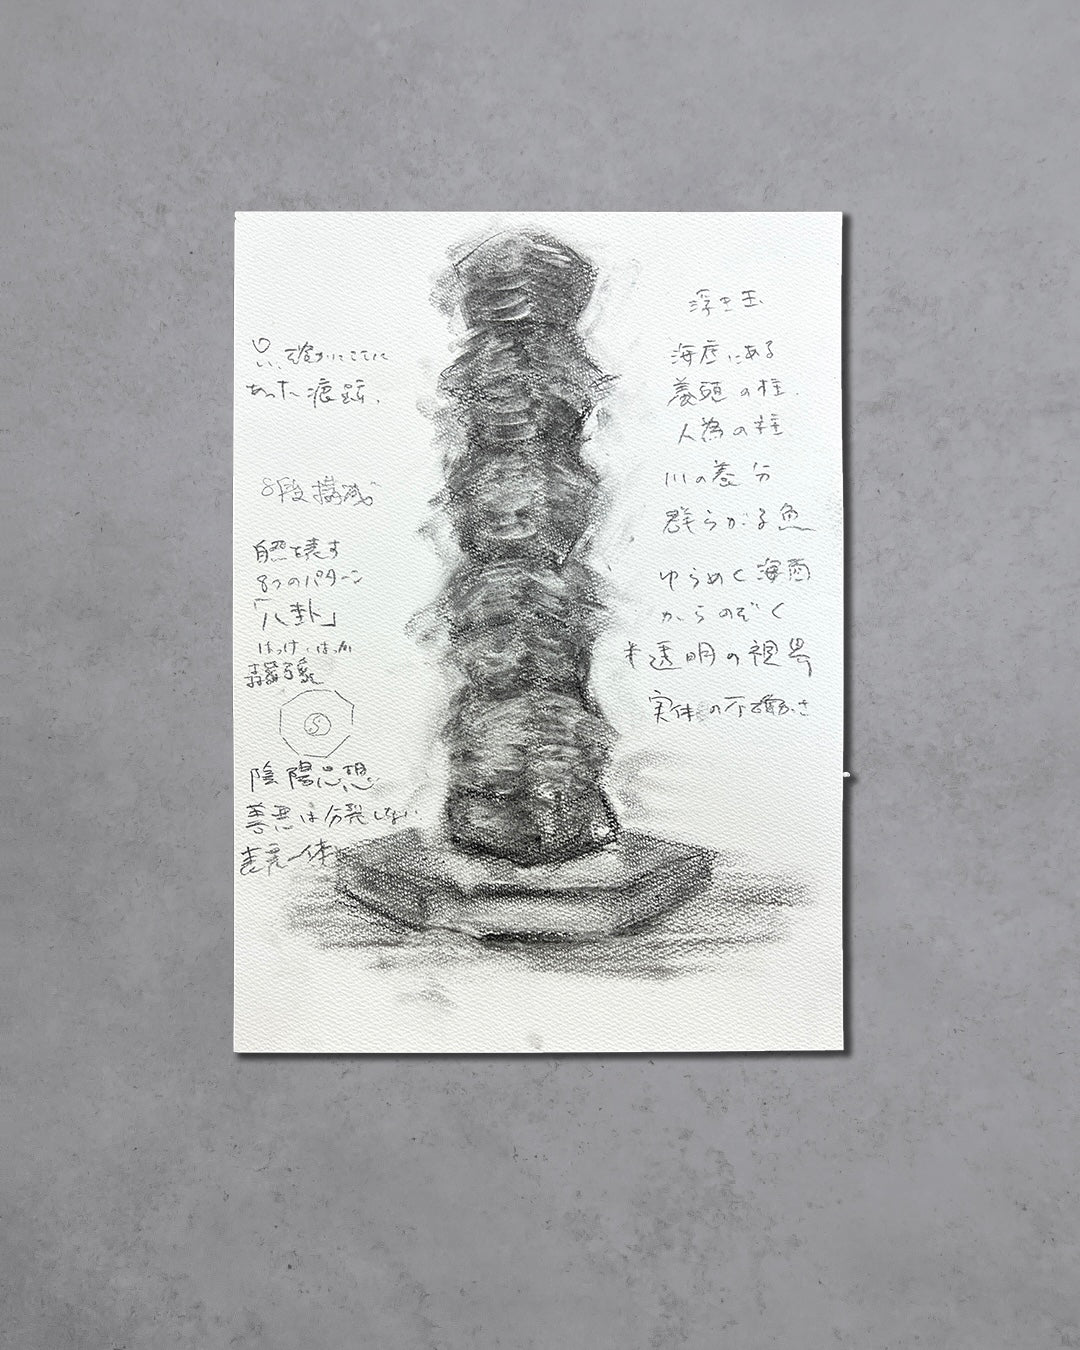 只、確かにここに
あった痕跡、
8段構成
自然を表す
8つのパターン
「八卦」
はっけ・はっか
森羅万象
陰陽思想
善悪は分裂しない
表裏一体
浮き玉
海底にある
の柱
人為の柱
川の養分
群らがる魚
ゆらめく海面
からのぞく
半透明の視界
実体の不確かさ